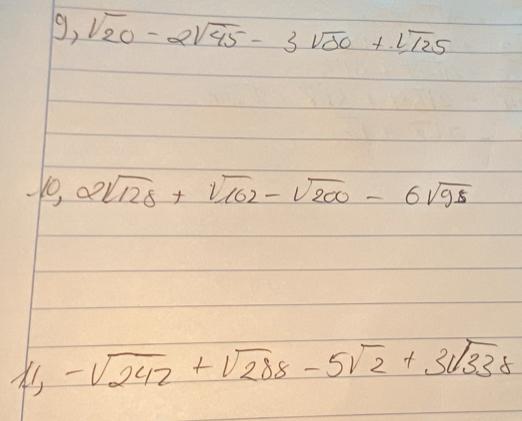 9, √20 - 2√45 - 3√80 + √125
10, 2√128 + √162 - √200 - 6√98
11, -√242 + √288 - 5√2 + 3√338